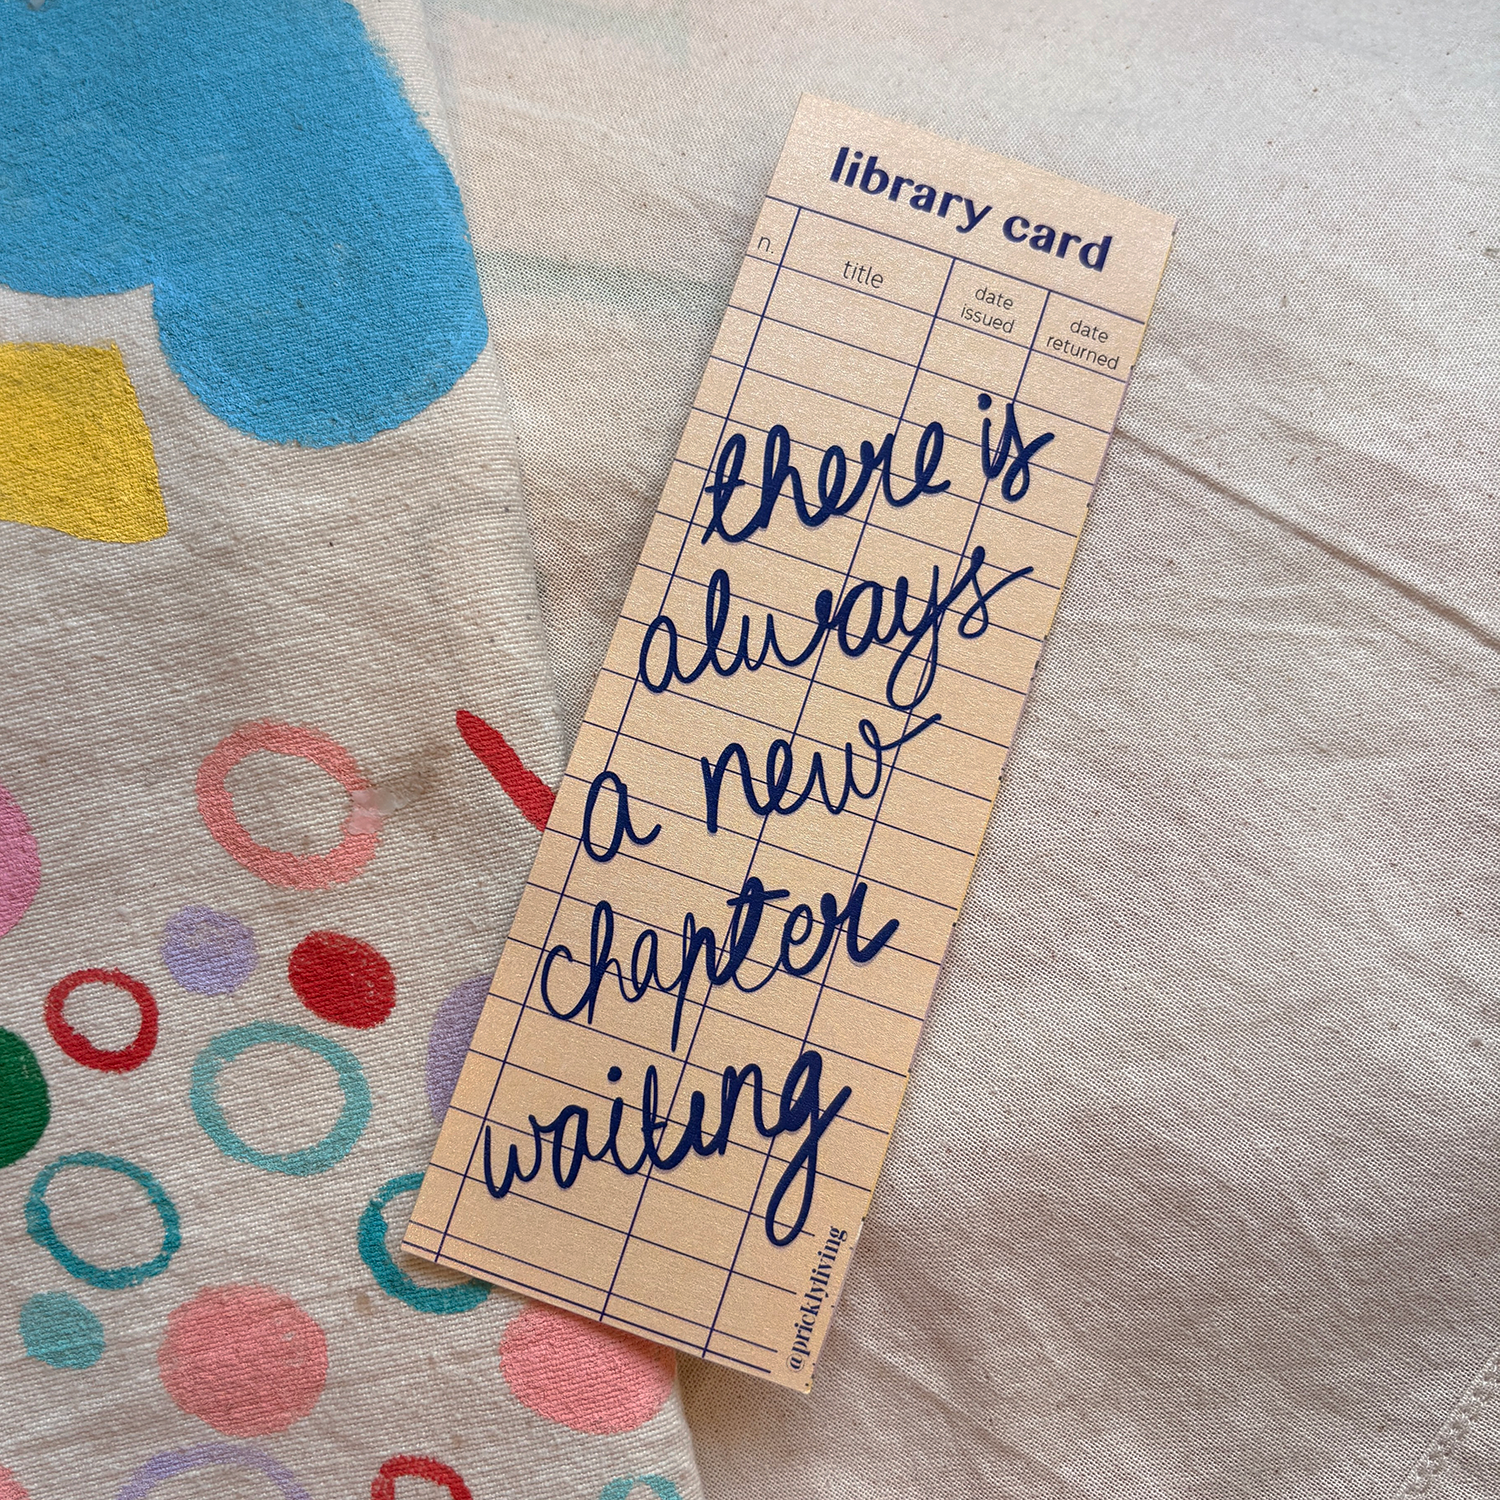 library card
n. title date issued date returned
there is
always
a new
chapter
waiting
@pricklyliving